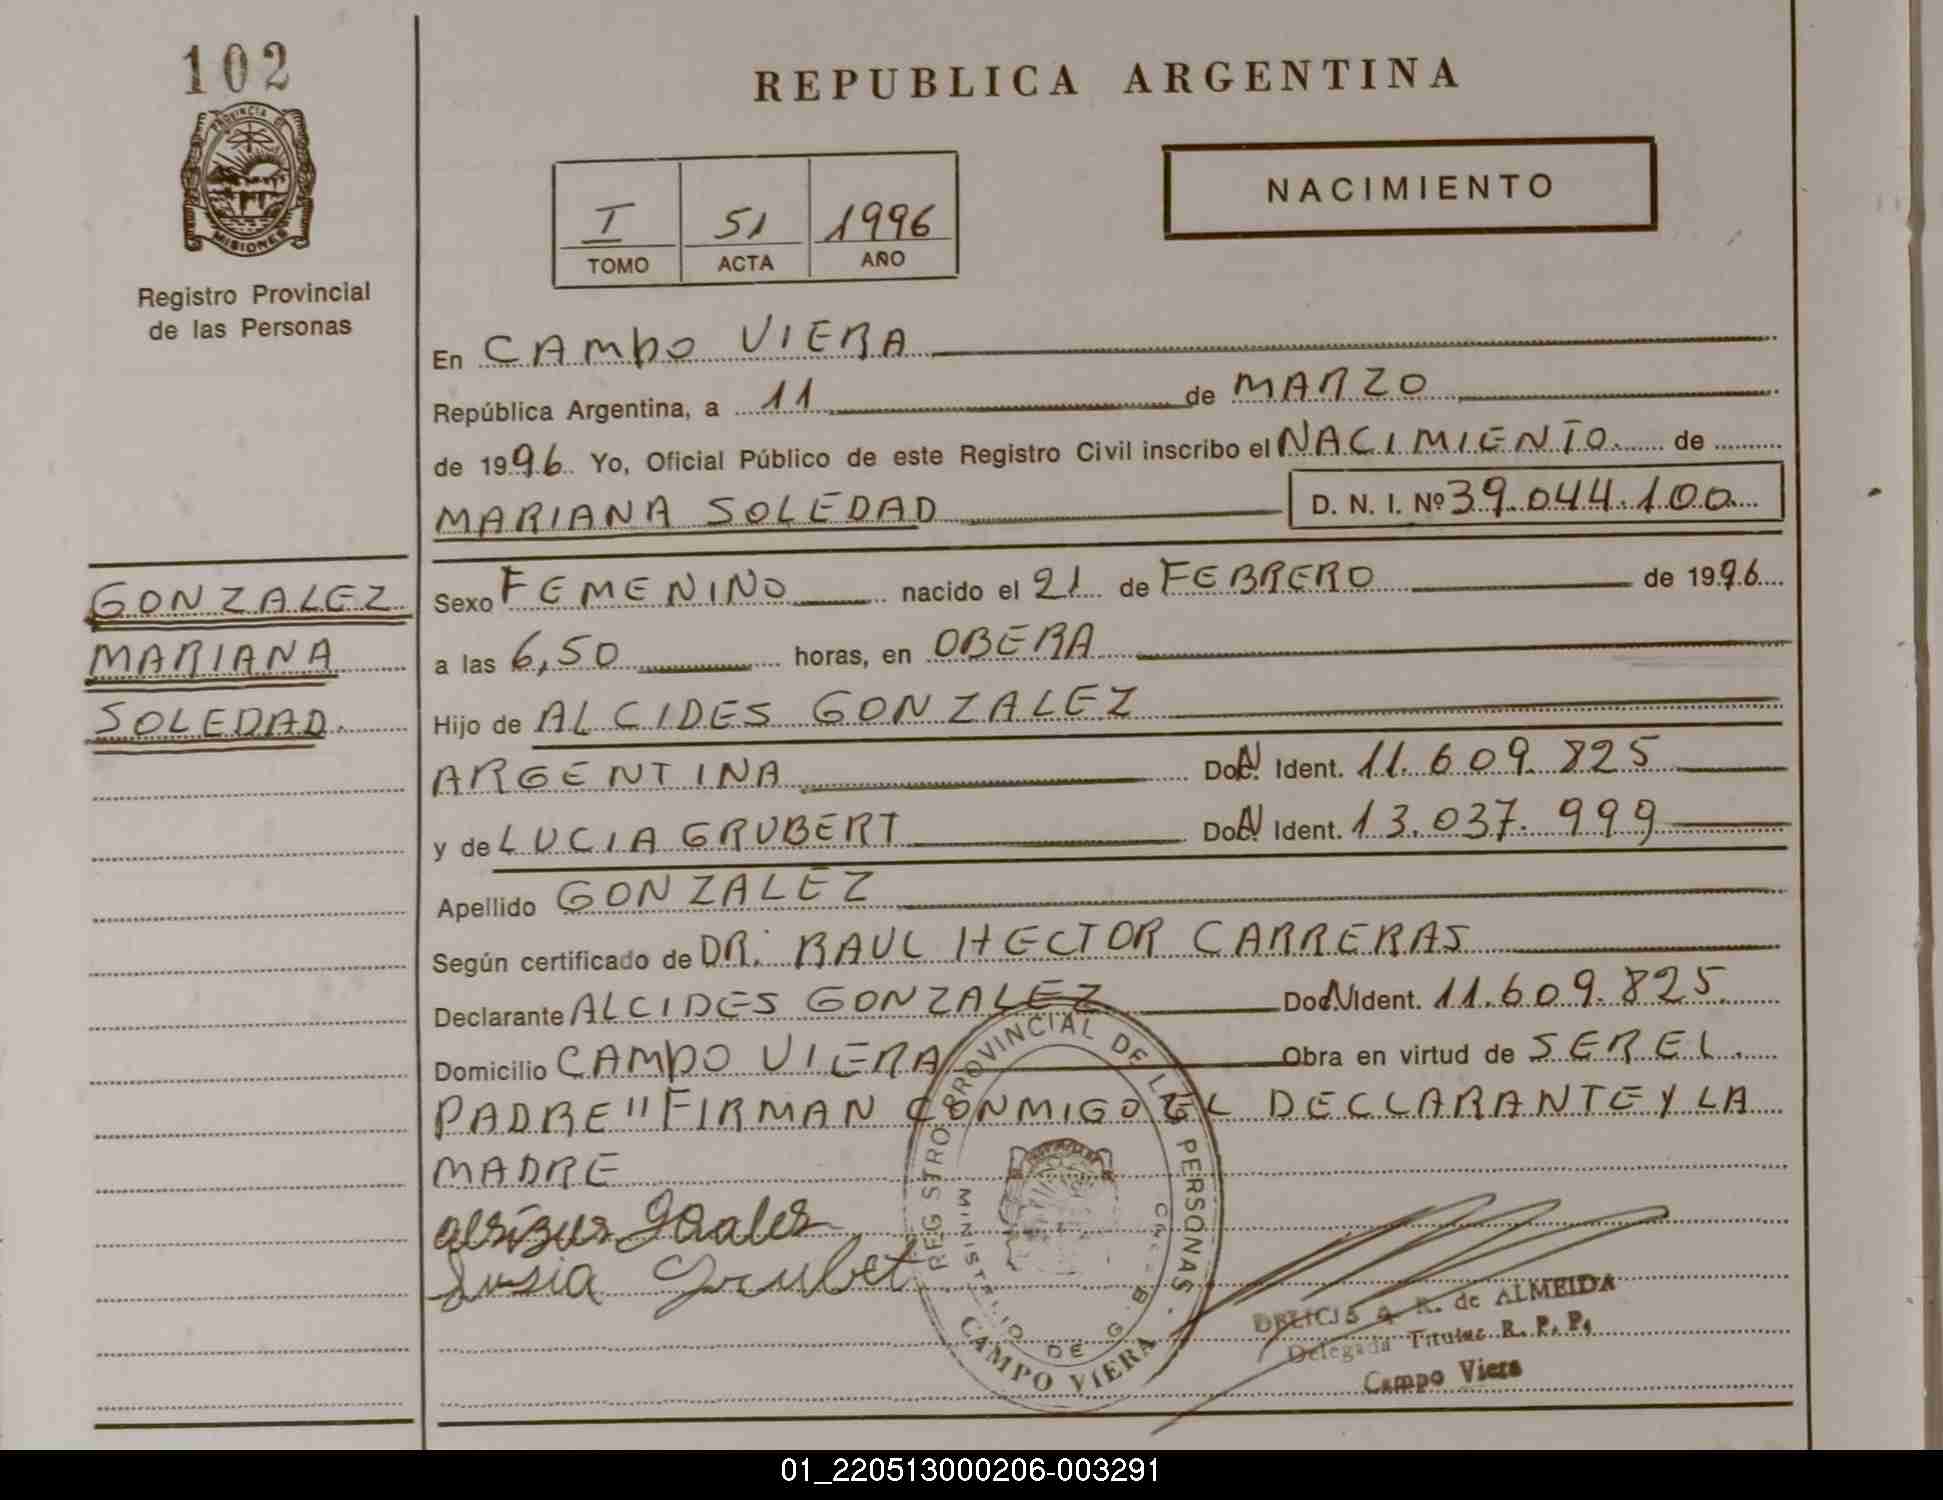 102
PROVINCIA DE
MISIONES
Registro Provincial
de las Personas
REPUBLICA ARGENTINA
I 51 1996
TOMO ACTA AÑO
NACIMIENTO
En CAMPO VIERA
República Argentina, a 11 de MARZO
de 1996 Yo, Oficial Público de este Registro Civil inscribo el NACIMIENTO de
MARIANA SOLEDAD D. N. I. Nº 39.044.100
GONZALEZ
MARIANA
SOLEDAD.
Sexo FEMENINO nacido el 21 de FEBRERO de 1996
a las 6,50 horas, en OBERA
Hijo de ALCIDES GONZALEZ
ARGENTINA Doc. N Ident. 11.609.825
y de LUCIA GRUBERT Doc. N Ident. 13.037.999
Apellido GONZALEZ
Según certificado de DR. RAUL HECTOR CARRERAS
Declarante ALCIDES GONZALEZ Doc. N Ident. 11.609.825
Domicilio CAMPO VIERA Obra en virtud de SER EL
PADRE" FIRMAN CONMIGO EL DECLARANTE Y LA
MADRE
Lusia Grubet
REGISTRO PROVINCIAL DE LAS PERSONAS
MINISTERIO DE GOB.
CAMPO VIERA
DELICIA A. R. de ALMEIDA
Delegada Titular R. P. P.
Campo Viera
01_220513000206-003291